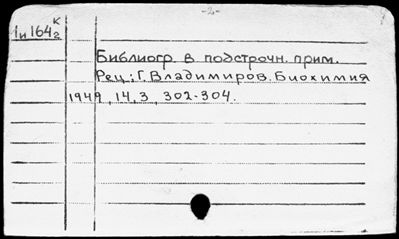 -2-
1и 164г к
Библиогр. в подстрочн. прим.
Рец.: Г. Владимиров. Биохимия
1949, 14, 3, 302-304.